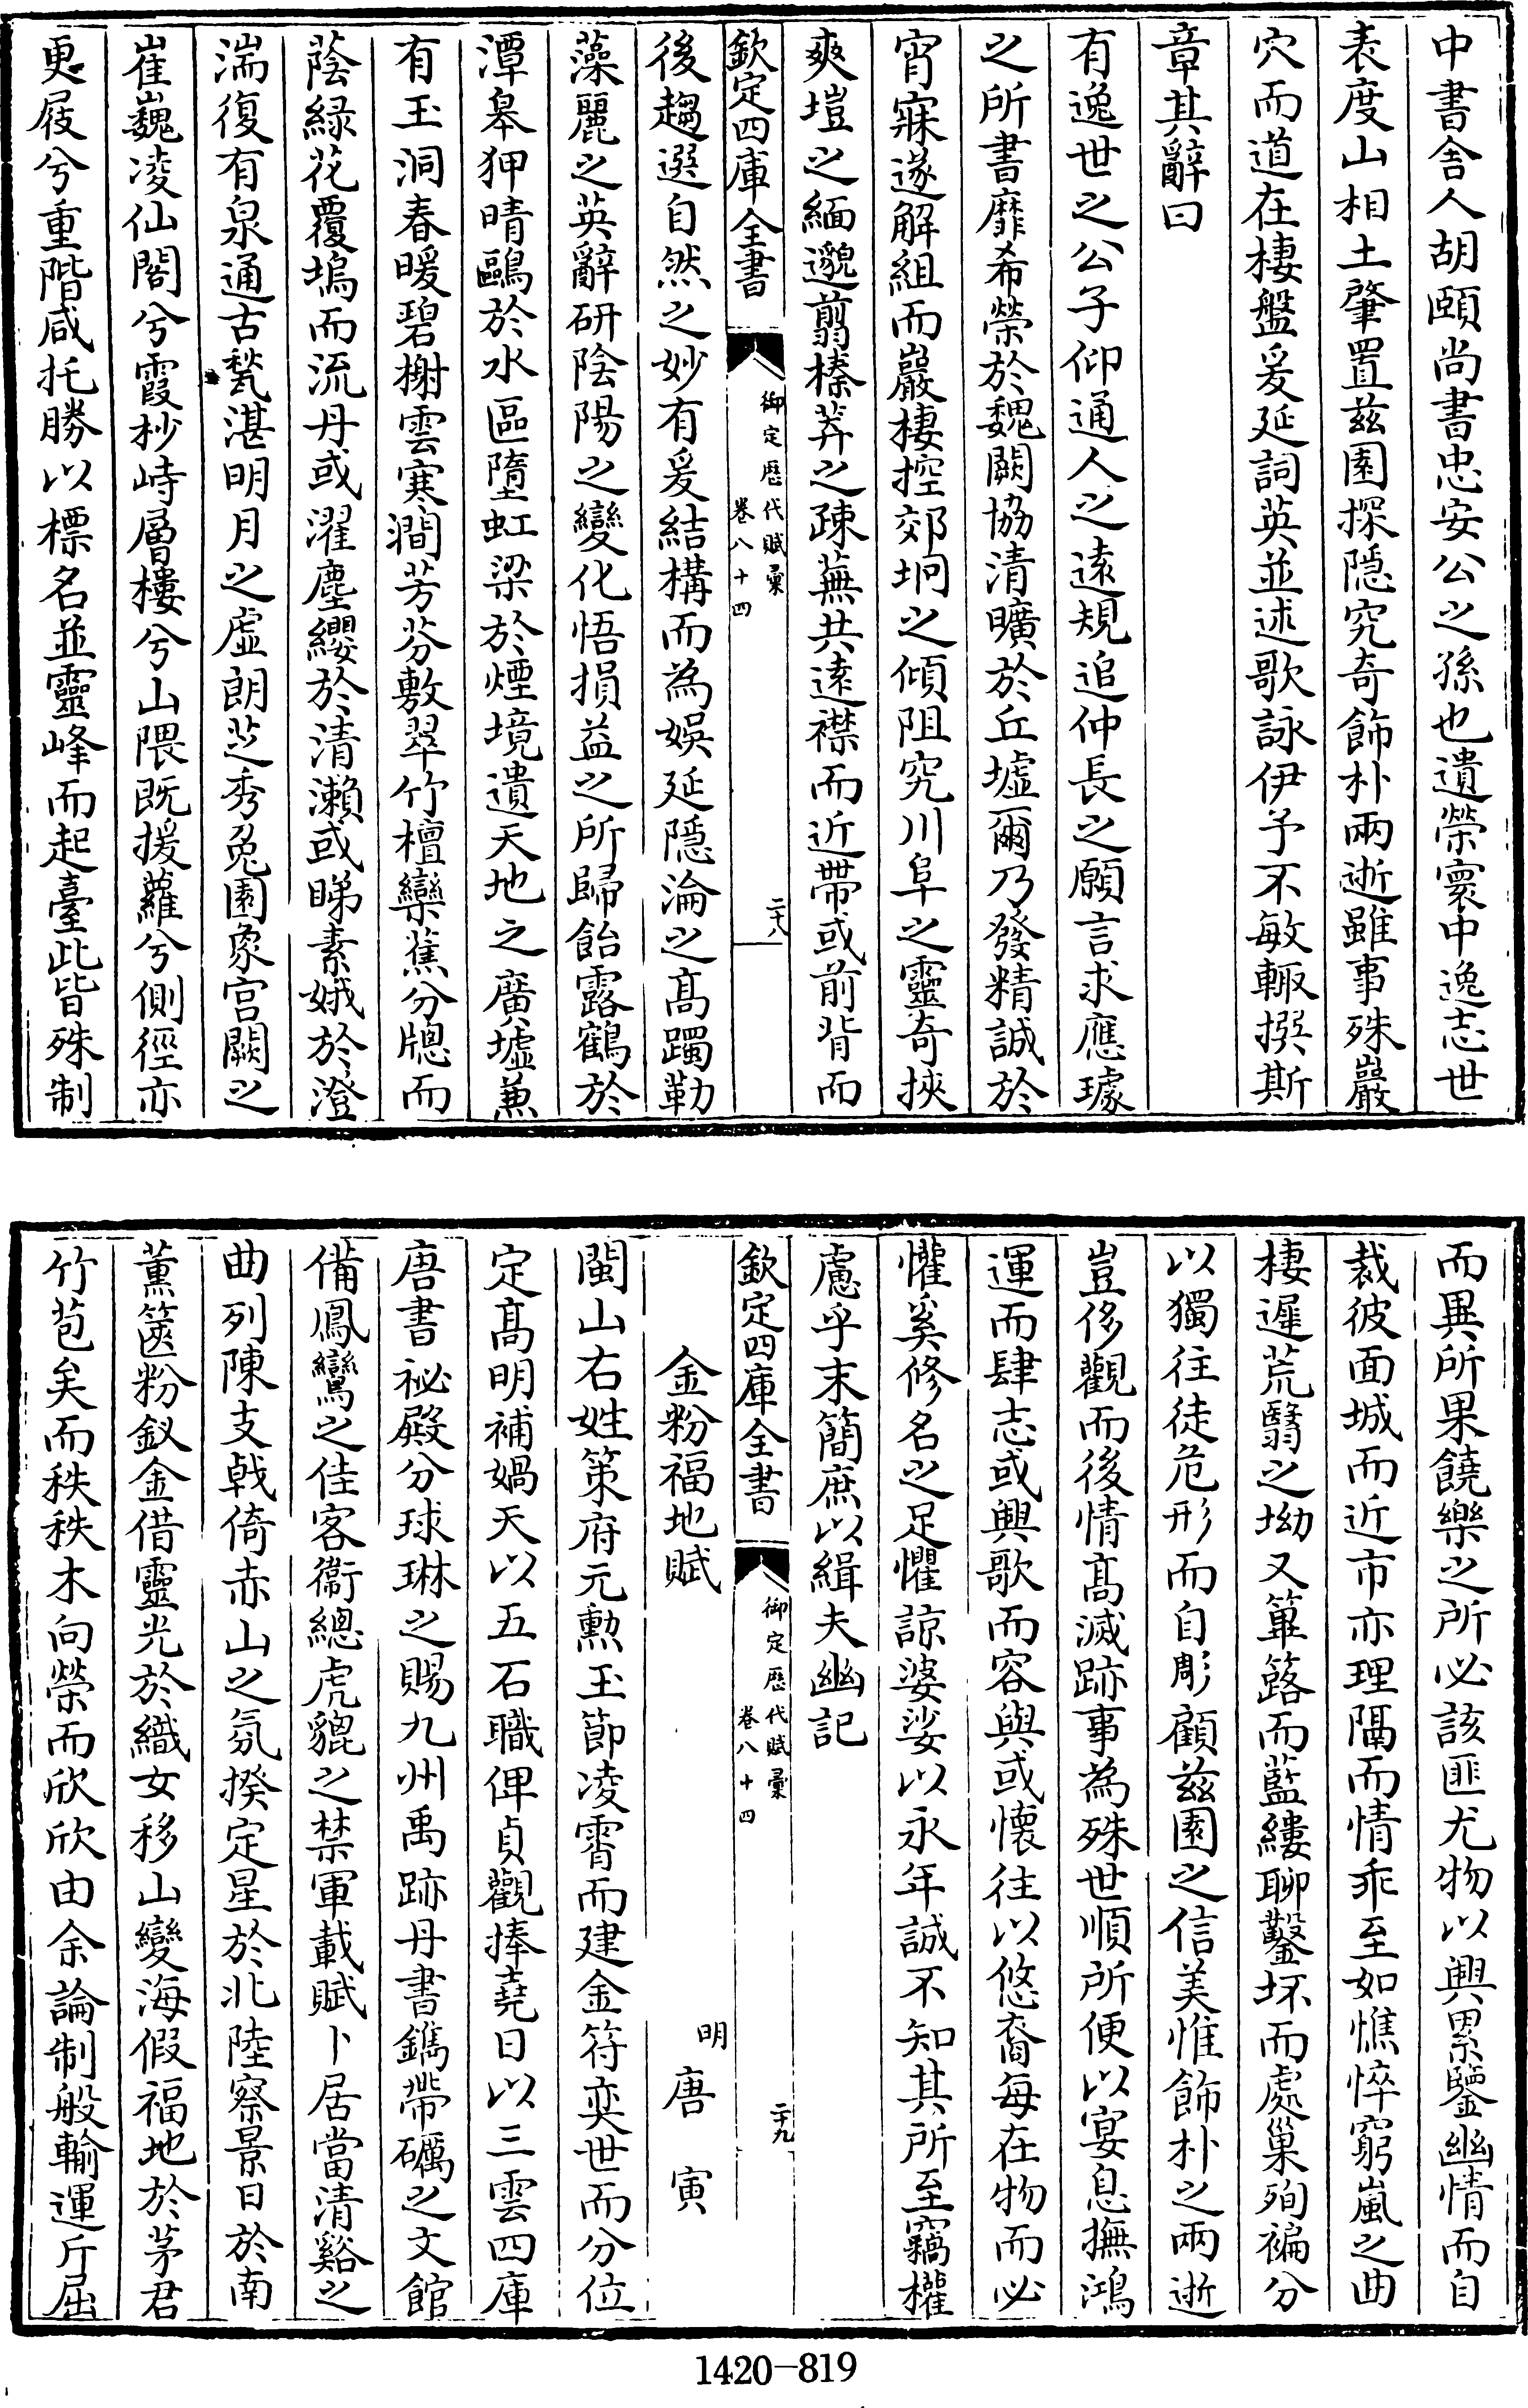 中書舍人胡頤尚書忠安公之孫也遺榮寰中逸志世
表度山相土肇置兹園探隠究奇飾朴兩逝雖事殊巖
穴而道在棲盤爰延詞英並述歌詠伊予不敏輙撰斯
章其辭曰
有逸世之公子仰通人之逺規追仲長之願言求應璩
之所書靡希榮於魏闕協清曠於丘墟爾乃發精誠於
宵寐遂解組而巖棲控郊坰之傾阻究川阜之靈奇挾
爽塏之緬邈翦榛莽之疎蕪共逺襟而近帶或前背而
欽定四庫全書
御定歴代賦彙
卷八十四
二十八
後趨選自然之妙有爰結構而為娯延隱淪之髙躅勒
藻麗之英辭研陰陽之變化悟損益之所歸飴露鶴於
潭皋狎晴鷗於水區墮虹梁於煙境遺天地之廣墟兼
有玉洞春暖碧榭雲寒澗芳芬敷翠竹檀欒蕉分牕而
蔭緑花覆塢而流丹或濯塵纓於清瀨或睇素娥於澄
湍復有泉通古甃湛明月之虚朗芝秀兔園象宫闕之
崔巍凌仙閣兮霞杪峙層樓兮山隈既援蘿兮側徑亦
更屐兮重階咸托勝以標名並靈峰而起臺此皆殊制
而異所果饒樂之所必該匪尤物以興累鑒幽情而自
裁彼面城而近市亦理隔而情乖至如憔悴窮嵐之曲
棲遲荒翳之坳又篳簬而藍縷聊鑿坏而處巢殉褊分
以獨往徒危形而自彫顧兹園之信美惟飾朴之兩逝
豈侈觀而後情髙滅跡事為殊世順所便以宴息撫鴻
運而肆志或興歌而容與或懷往以悠裔每在物而必
懽奚修名之足懼諒婆娑以永年誠不知其所至竊權
慮乎末簡庶以緝夫幽記
欽定四庫全書
御定歴代賦彙
卷八十四
二十九
金粉福地賦
明 唐寅
閩山右姓策府元勲玉節凌霄而建金符奕世而分位
定髙明補媧天以五石職俾貞觀捧堯日以三雲四庫
唐書祕殿分球琳之賜九州禹跡丹書鐫帶礪之文館
備鳳鸞之佳客衞總虎貔之禁軍載賦卜居當清谿之
曲列陳支戟倚赤山之氛揆定星於北陸察景日於南
薰篋粉釵金借靈光於織女移山變海假福地於茅君
竹苞矣而秩秩木向榮而欣欣由余論制般輸運斤屈
1420-819